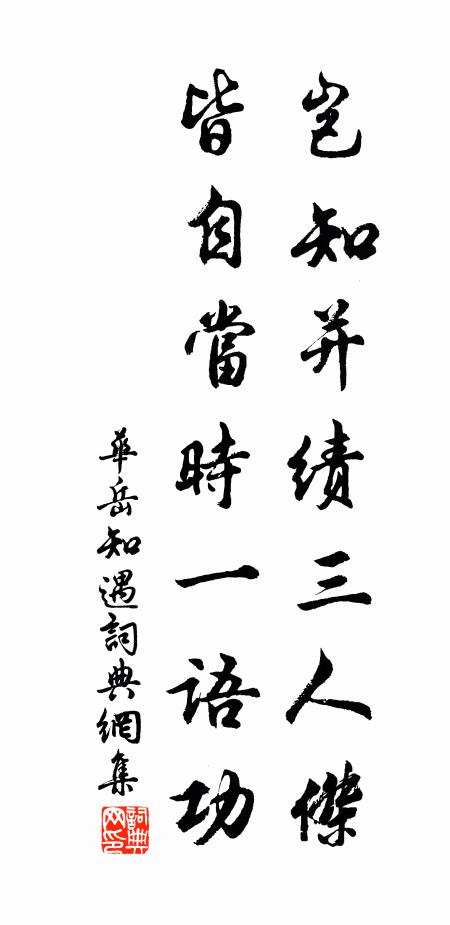 岂知并绩三人傑
皆自當時一语功
華岳知遇詞典網集
詞典网印